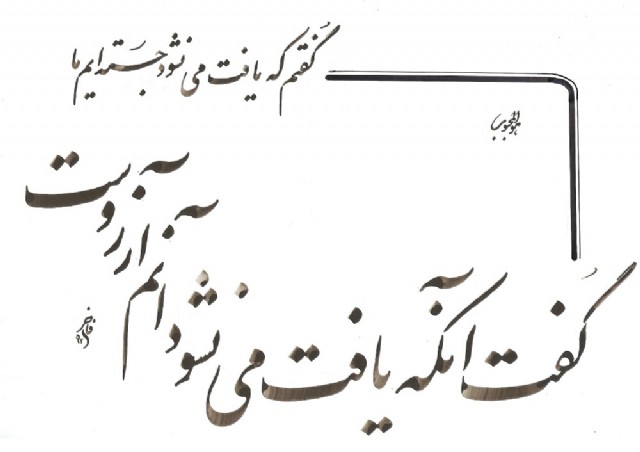 گفتم که یافت می نشود جسته ایم ما
هوالمحبوب
گفت آنکه یافت می نشود آنم آرزوست